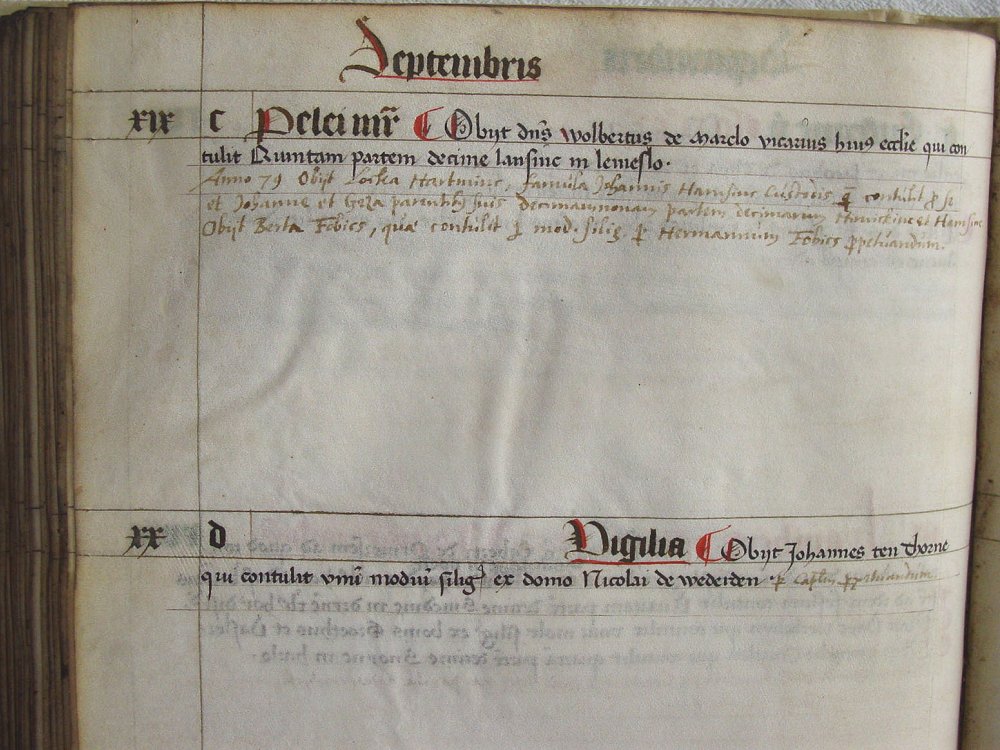 Septembris
xix c Pelei mr̄ Obijt dn̄s wolbertus de marclo vicarius huiꝰ ecclie qui con
tulit Quintam partem decime lansinc in lemeslo.
Anno 79 Obijt Hartminc, famula Johannis Hamsinc Custodis, contulit
et Johanne et Geza suis decimamnonam partem decimarum et Hamsinc
Obijt Berta Fobics, quae contulit mod. silig. ꝑ Hermannum Fobics ꝑpetuandum.
xx d Vigilia Obijt Johannes ten thorne
qui contulit vnū modiū silig ex domo Nicolai de wederden ꝑ ꝑpetuandum